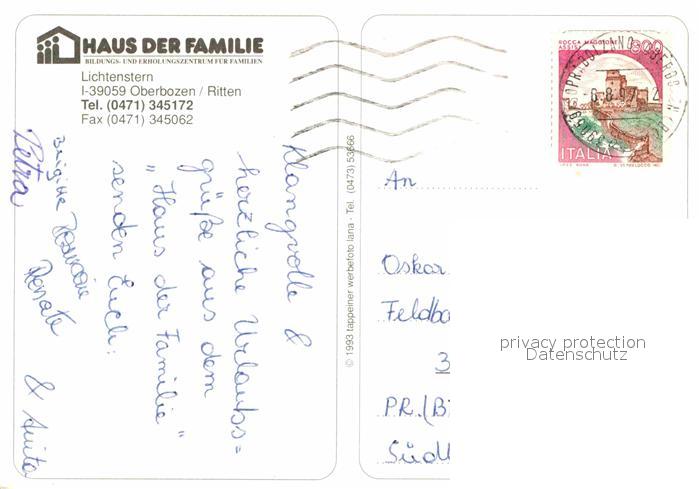 HAUS DER FAMILIE
BILDUNGS- UND ERHOLUNGSZENTRUM FÜR FAMILIEN
Lichtenstern
I-39059 Oberbozen / Ritten
Tel. (0471) 345172
Fax (0471) 345062
Klangvolle &
herzliche Urlaubs=
grüße aus dem
"Haus der Familie"
senden Euch:
Brigitte
Renate
Petra
& Anita
© 1993 tappeiner werbefoto lana - Tel. (0473) 53666
ROCCA MAGGIORE
ASSISI
800
ITALIA
An
Oskar
Feldba
3
PR.(B
Südt
privacy protection
Datenschutz